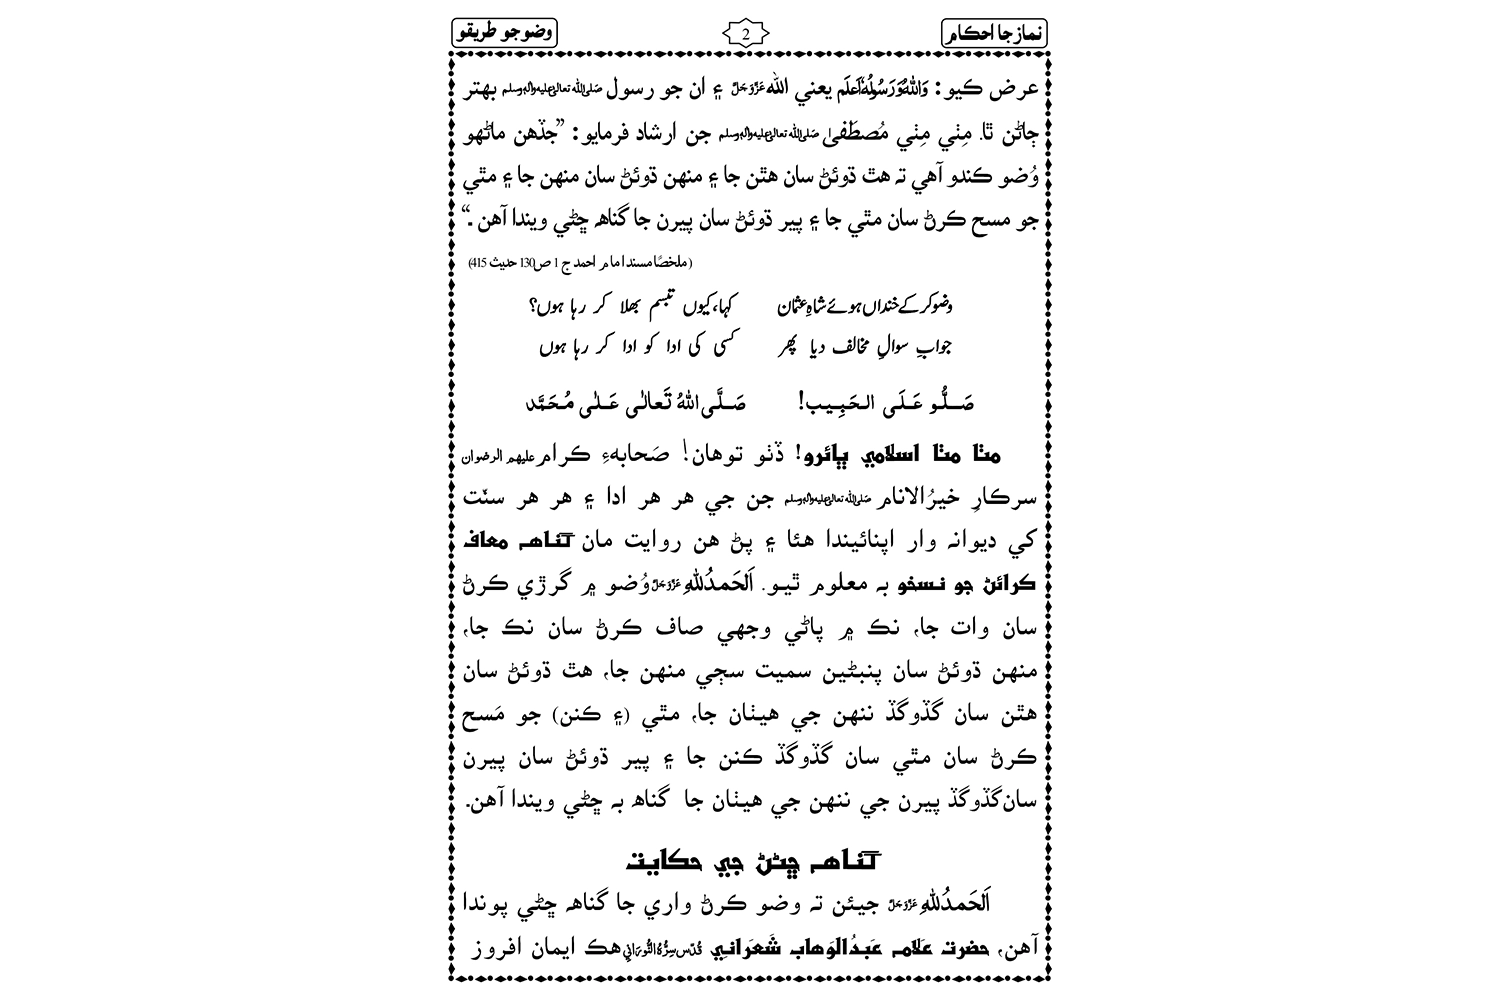 نماز جا احڪام
2
وضو جو طريقو
عرض ڪيو: وَاللّٰهُ وَرَسُولُهٗ اَعلَم يعني الله عَزَّوَجَلَّ ۽ ان جو رسول صَلَّى اللّٰه تعالٰى عليه واٰله وسلم بهتر
ڄاڻن ٿا. مِٺي مِٺي مُصطَفیٰ صَلَّى اللّٰه تعالٰى عليه واٰله وسلم جن ارشاد فرمايو: ”جڏهن ماڻهو
وُضو ڪندو آهي ته هٿ ڌوئڻ سان هٿن جا ۽ منهن ڌوئڻ سان منهن جا ۽ مٿي
جو مسح ڪرڻ سان مٿي جا ۽ پير ڌوئڻ سان پيرن جا گناهہ ڇڻي ويندا آهن.“
(ملخصًا مسند امام احمد ج 1 ص130 حديث 415)
وضو کر کے خنداں ہوئے شاہِ عثمان کہا، کیوں تبسم بھلا کر رہا ہوں؟
جوابِ سوالِ مخالف دیا پھر کسی کی ادا کو ادا کر رہا ہوں
صَلُّو عَلَى الحَبِيب! صَلَّى اللّٰهُ تَعالٰى عَلٰى مُحَمَّد
مٺا مٺا اسلامي ڀائرو! ڏٺو توهان! صَحابهءِ ڪرام عليهم الرضوان
سرڪارِ خيرُالانام صَلَّى اللّٰه تعالٰى عليه واٰله وسلم جن جي هر هر ادا ۽ هر هر سنّت
کي ديوانہ وار اپنائيندا هئا ۽ پڻ هن روايت مان گناهہ معاف
ڪرائڻ جو نسخو بہ معلوم ٿيو. اَلحَمدُلِلّٰهِ عَزَّوَجَلَّ وُضو ۾ گرڙي ڪرڻ
سان وات جا، نڪ ۾ پاڻي وجهي صاف ڪرڻ سان نڪ جا،
منهن ڌوئڻ سان پنبڻين سميت سڄي منهن جا، هٿ ڌوئڻ سان
هٿن سان گڏوگڏ ننهن جي هيٺان جا، مٿي (۽ ڪنن) جو مَسح
ڪرڻ سان مٿي سان گڏوگڏ ڪنن جا ۽ پير ڌوئڻ سان پيرن
سان گڏوگڏ پيرن جي ننهن جي هيٺان جا گناهہ بہ ڇڻي ويندا آهن.
گناهہ ڇڻڻ جي حڪايت
اَلحَمدُلِلّٰهِ عَزَّوَجَلَّ جيئن تہ وضو ڪرڻ واري جا گناهہ ڇڻي پوندا
آهن، حضرت علامہ عَبدُالوَهاب شَعَراني قُدِّسَ سِرُّهُ النُّورَانِي هڪ ايمان افروز